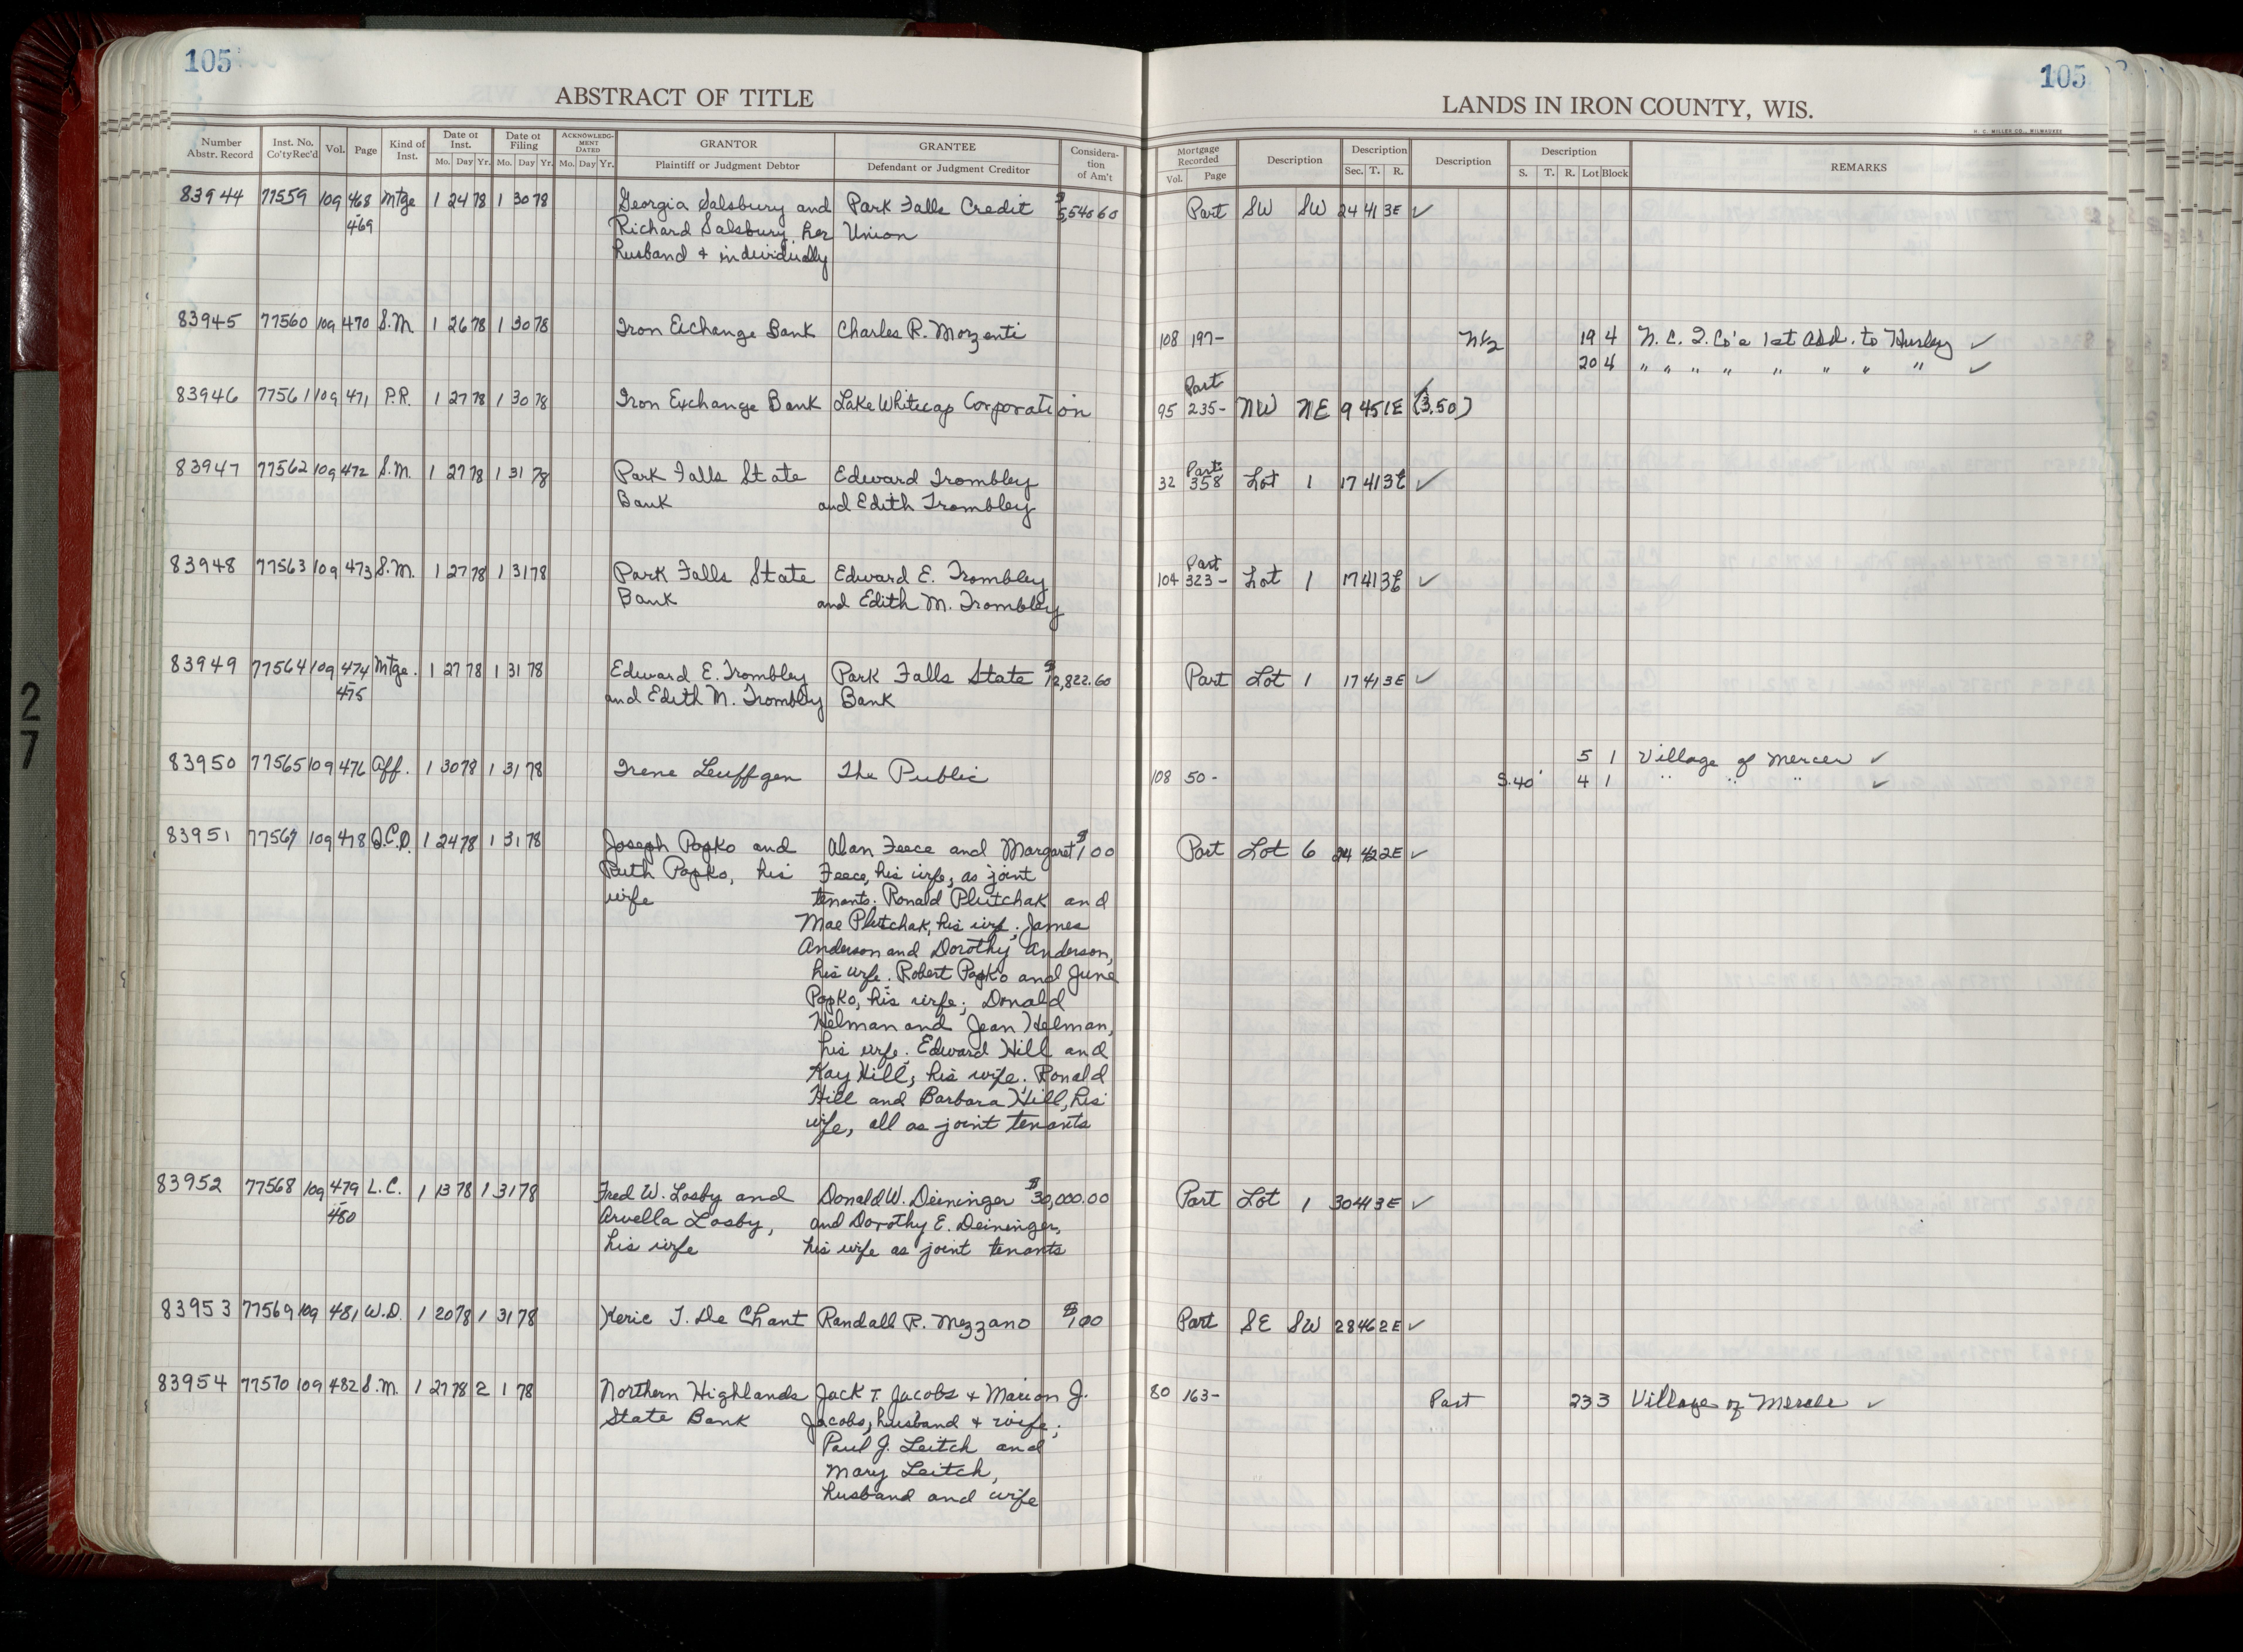 105
ABSTRACT OF TITLE
Number Abstr. Record | Inst. No. Co'ty Rec'd | Vol. | Page | Kind of Inst. | Date of Inst. Mo. Day Yr. | Date of Filing Mo. Day Yr. | ACKNOWLEDGMENT DATED Mo. Day Yr. | GRANTOR Plaintiff or Judgment Debtor | GRANTEE Defendant or Judgment Creditor | Consideration of Am't
83944 77559 109 468 Mtge 1 24 78 1 30 78 Georgia Salsbury and Park Falls Credit $5,540 60
- 469 Richard Salsbury, her Union
husband & individually
83945 77560 109 470 S.M. 1 26 78 1 30 78 Iron Exchange Bank Charles R. Mozzenti
83946 77561 109 471 P.R. 1 27 78 1 30 78 Iron Exchange Bank Lake Whitecap Corporation
83947 77562 109 472 S.M. 1 27 78 1 31 78 Park Falls State Edward Trombley
Bank and Edith Trombley
83948 77563 109 473 S.M. 1 27 78 1 31 78 Park Falls State Edward E. Trombley
Bank and Edith M. Trombley
83949 77564 109 474 Mtge. 1 27 78 1 31 78 Edward E. Trombley Park Falls State $12,822.60
- 475 and Edith M. Trombley Bank
83950 77565 109 476 Aff. 1 30 78 1 31 78 Irene Leuffgen The Public
83951 77567 109 478 Q.C.D. 1 24 78 1 31 78 Joseph Popko and Alan Feece and Margaret $1 00
Ruth Popko, his Feece, his wife, as joint
wife tenants. Ronald Plutchak and
Mae Plutchak, his wife; James
Anderson and Dorothy Anderson,
his wife. Robert Popko and June
Popko, his wife; Donald
Helman and Jean Helman,
his wife. Edward Hill and
Kay Hill, his wife; Ronald
Hill and Barbara Hill, his
wife, all as joint tenants
83952 77568 109 479 L.C. 1 13 78 1 31 78 Fred W. Losby and Donald W. Deininger $30,000.00
- 480 Arvella Losby, and Dorothy E. Deininger,
his wife his wife as joint tenants
83953 77569 109 481 W.D. 1 20 78 1 31 78 Keric T. De Chant Randall R. Mezzano $1 00
83954 77570 109 482 S.M. 1 27 78 2 1 78 Northern Highlands Jack T. Jacobs & Marion J.
State Bank Jacobs, husband & wife;
Paul J. Leitch and
Mary Leitch,
husband and wife
105
LANDS IN IRON COUNTY, WIS.
H. C. MILLER CO., MILWAUKEE
Mortgage Recorded Vol. Page | Description | Description Sec. T. R. | Description | Description S. T. R. Lot Block | REMARKS
Part SW SW 24 41 3E ✓
108 197- N½ 19 4 N.C.I. Co's 1st Add. to Hurley ✓
20 4 " " " " " " " " ✓
Part
95 235- NW NE 9 45 1E (3.50)
Part
32 358 Lot 1 17 41 3E ✓
Part
104 323- Lot 1 17 41 3E ✓
Part Lot 1 17 41 3E ✓
5 1 Village of Mercer ✓
108 50- S.40' 4 1 " " " ✓
Part Lot 6 24 42 2E ✓
Part Lot 1 30 41 3E ✓
Part SE SW 28 46 2E ✓
80 163- Part 23 3 Village of Mercer ✓
27